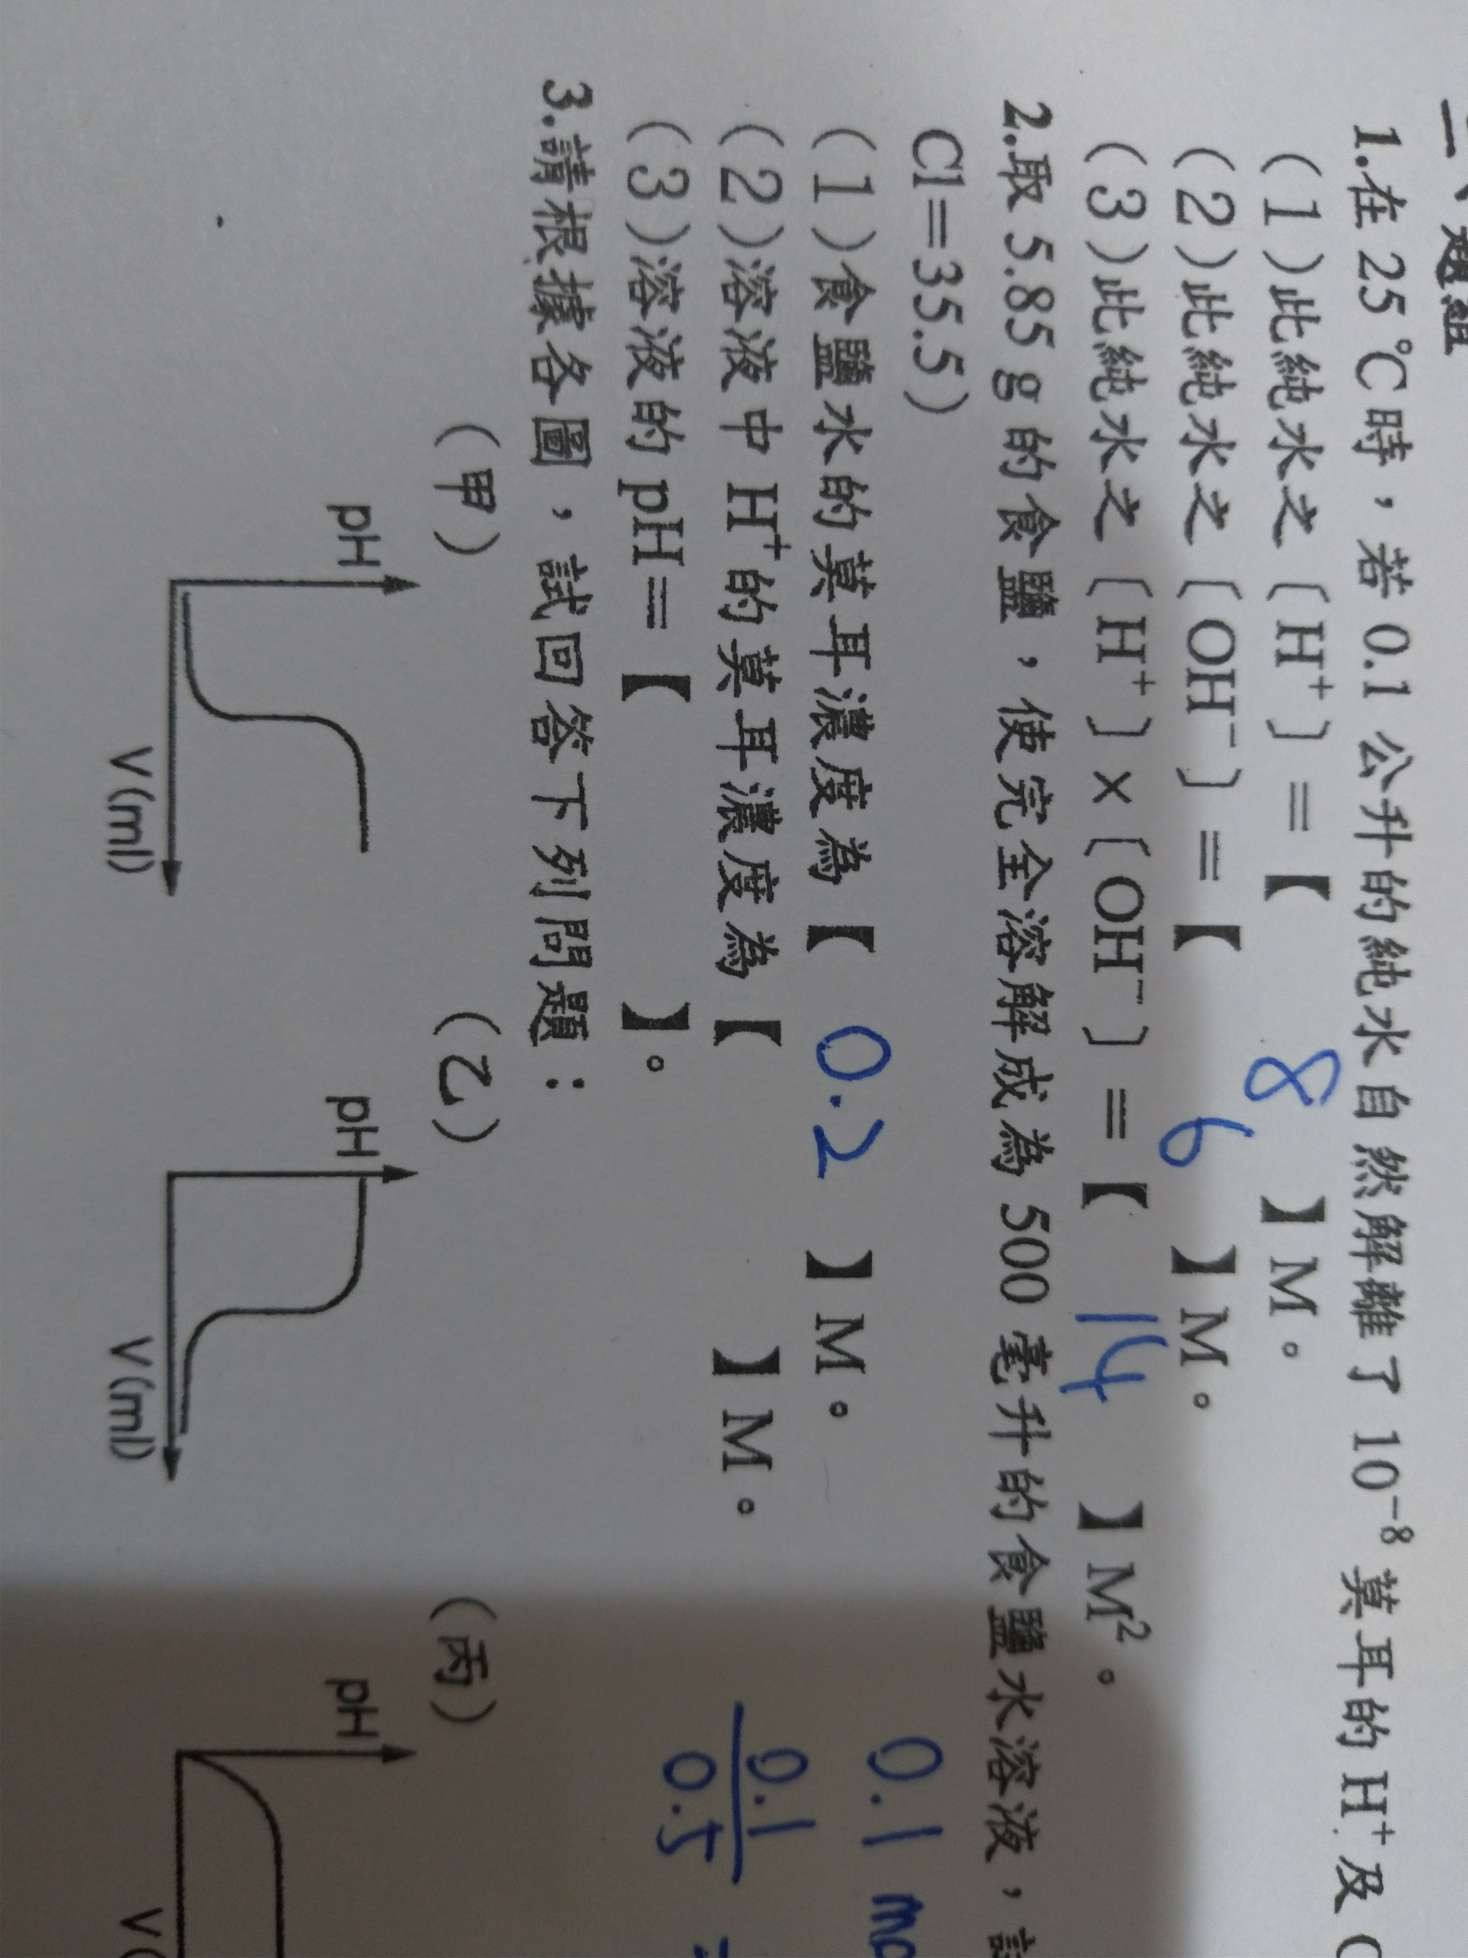 二、題組
1.在 25 ℃時，若 0.1 公升的純水自然解離了 10⁻⁸ 莫耳的 H⁺及
(1)此純水之〔H⁺〕=【 8 】M。
(2)此純水之〔OH⁻〕=【 6 】M。
(3)此純水之〔H⁺〕×〔OH⁻〕=【 14 】M²。
2.取 5.85 g 的食鹽，使完全溶解成為 500 毫升的食鹽水溶液，
Cl=35.5)
(1)食鹽水的莫耳濃度為【 0.2 】M。
(2)溶液中 H⁺的莫耳濃度為【 】M。
(3)溶液的 pH=【 】。
0.1
0.1
0.5
=
3.請根據各圖，試回答下列問題：
(甲) (乙) (丙)
pH pH pH
V(ml) V(ml) V(